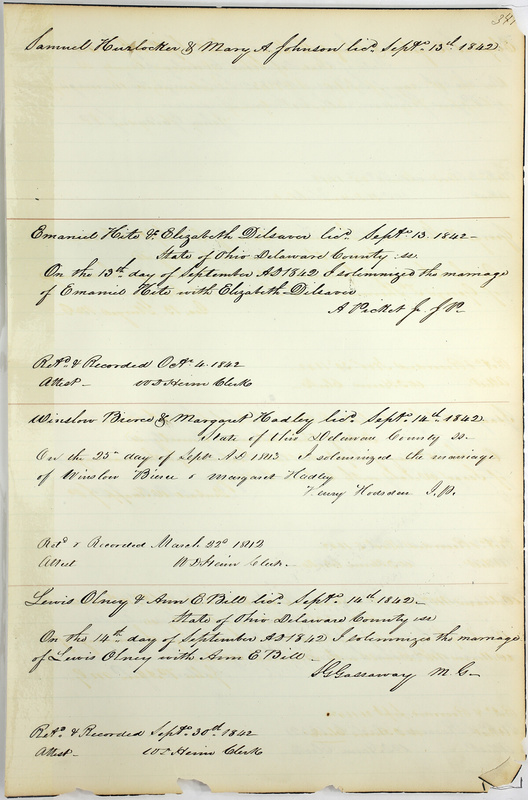 341
Samuel Hurlocker & Mary A. Johnson licd. Sept. 13th 1842
Emaniel Hite & Elizabeth Dilsaver licd. Sept. 13. 1842
State of Ohio Delaware County ss.
On the 13th day of September AD 1842 I solemnized the marriage
of Emaniel Hite with Elizabeth Dilsaver
A Picket J. P.
Retd. & Recorded Oct. 4. 1842
Attest W D Heim Clerk
Winslow Bierce & Margaret Hadley licd. Sept. 14th. 1842
State of Ohio Delaware County ss.
On the 25th day of Sept. A.D. I solemnized the marriage
of Winslow Bierce & Margaret Hadley
Henry Hodsden J.P.
Retd. & Recorded March 22d
Attest W D Heim Clerk
Lewis Olney & Ann E Bell licd. Sept. 14th 1842
State of Ohio Delaware County ss
On the 14th day of September AD 1842 I solemnized the marriage
of Lewis Olney with Ann E Bell
Gassaway M. G.
Retd. & Recorded Sept. 30th. 1842
Attest W D Heim Clerk